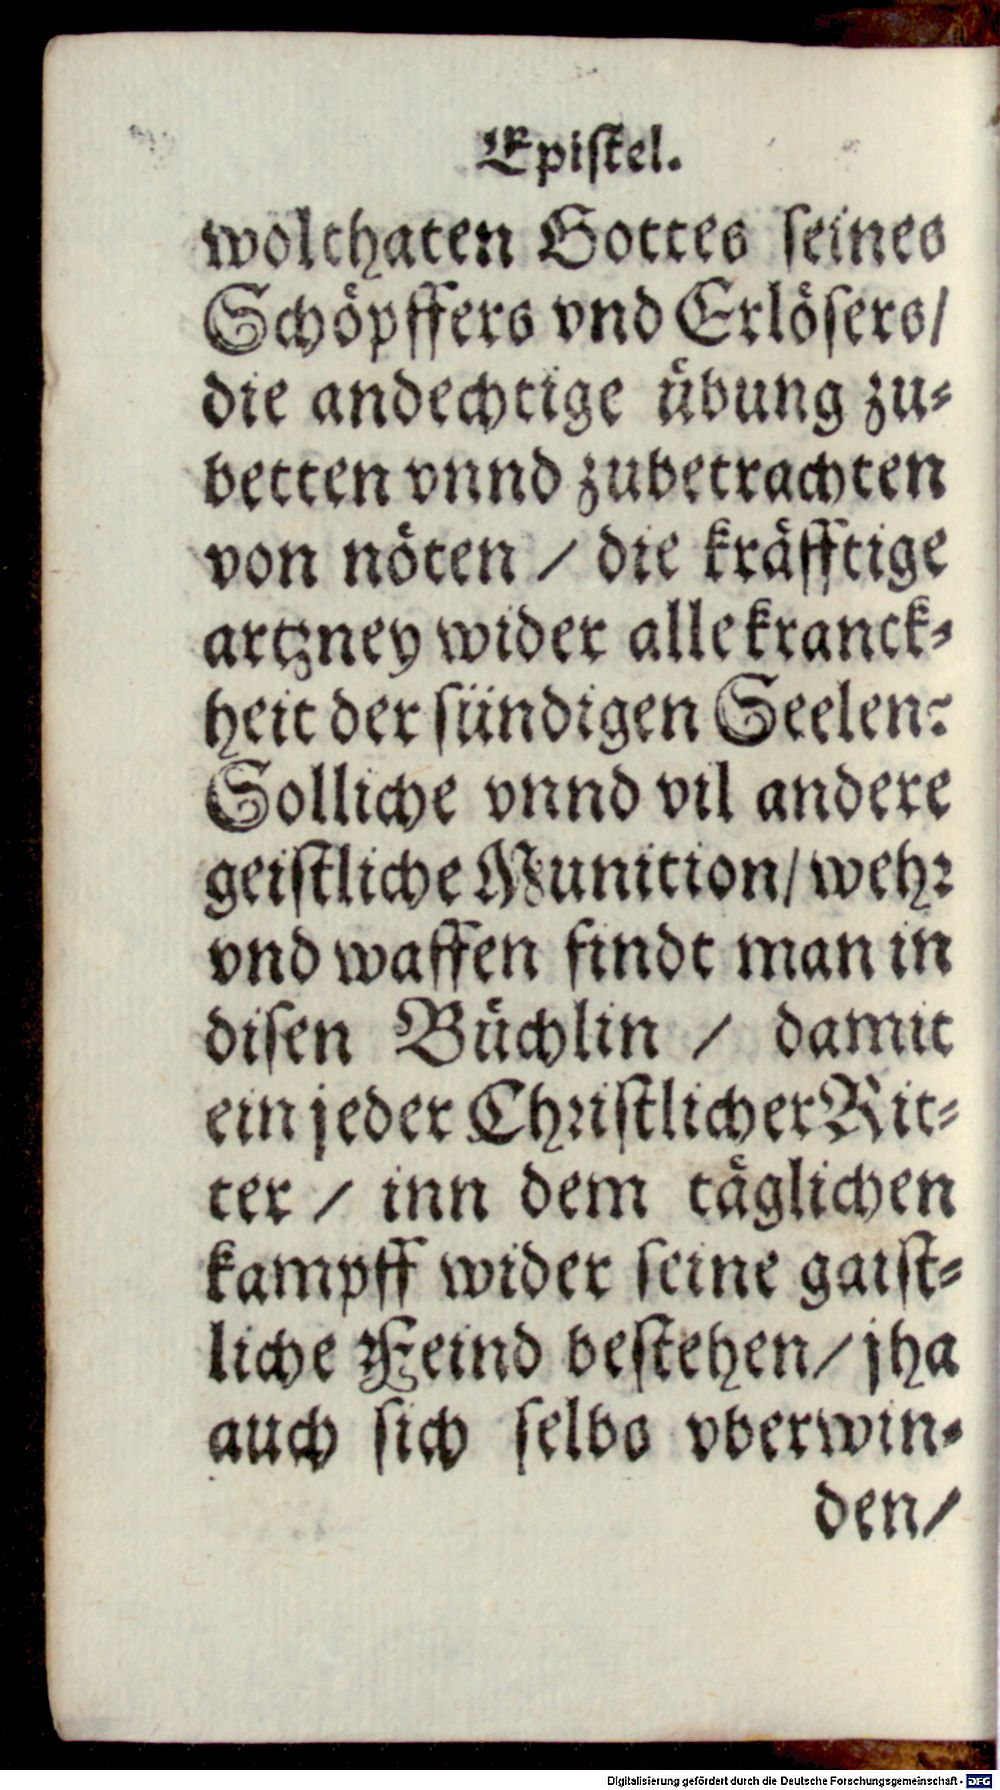 Epistel.
wolthaten Gottes seines
Schöpffers vnd Erlösers/
die andechtige übung zu-
betten vnnd zubetrachten
von nöten / die kräfftige
artzney wider alle kranck-
heit der sündigen Seelen:
Solliche vnnd vil andere
geistliche Munition/ wehr
vnd waffen findt man in
disen Büchlin / damit
ein jeder Christlicher Rit-
ter / inn dem täglichen
kampff wider seine gaist-
liche Feind bestehen/ jha
auch sich selbs vberwin-
den/
Digitalisierung gefördert durch die Deutsche Forschungsgemeinschaft - DFG